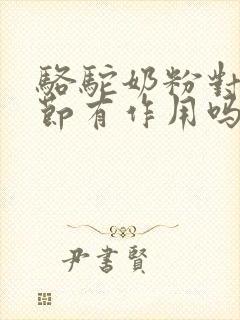 駱駝奶粉對
節有作用嗎
尹書賢